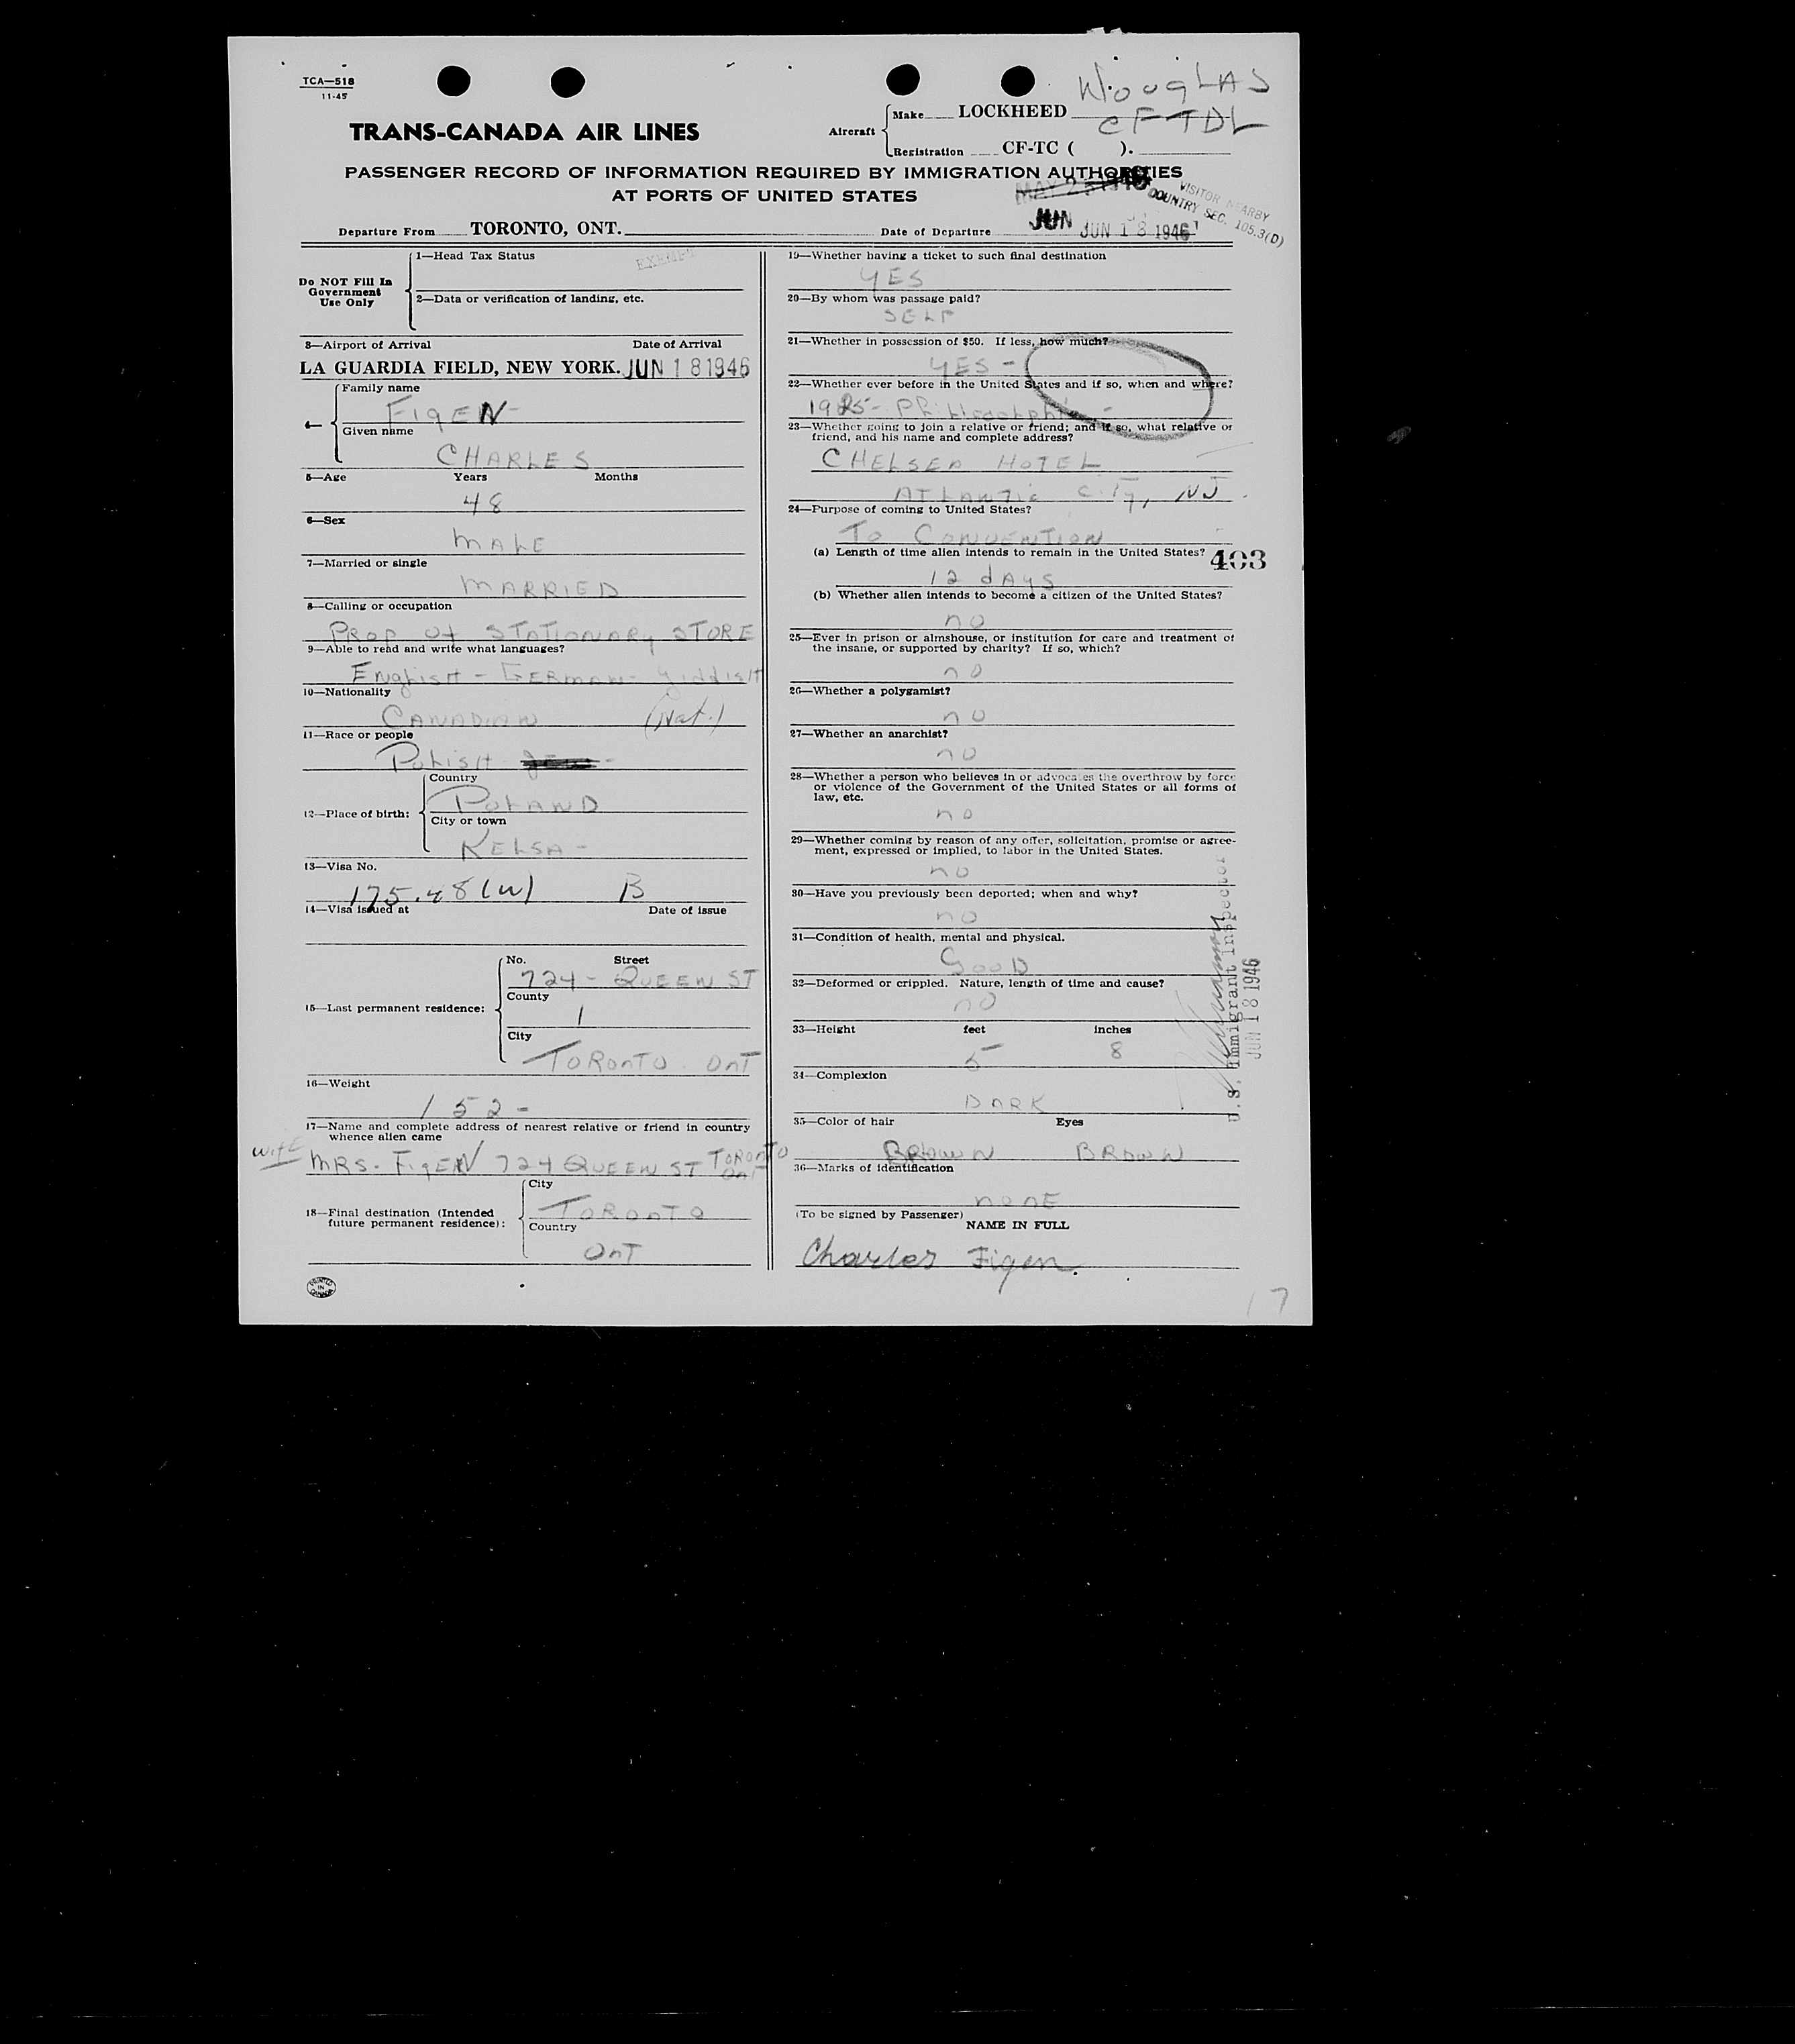 TCA—518
11-45
TRANS-CANADA AIR LINES
Aircraft
Make LOCKHEED DOUGLAS
Registration CF-TC ( ). CFTDL
PASSENGER RECORD OF INFORMATION REQUIRED BY IMMIGRATION AUTHORITIES
AT PORTS OF UNITED STATES
VISITOR NEARBY
COUNTRY SEC. 105.3(D)
Departure From TORONTO, ONT.
Date of Departure JUN JUN 18 1946
Do NOT Fill In
Government
Use Only
1—Head Tax Status EXEMPT
2—Data or verification of landing, etc.
3—Airport of Arrival Date of Arrival
LA GUARDIA FIELD, NEW YORK. JUN 18 1946
4—
Family name
FigEN-
Given name
CHARLES
5—Age Years Months
48
6—Sex
MALE
7—Married or single
MARRIED
8—Calling or occupation
PROP of STATIONARY STORE
9—Able to read and write what languages?
English - GERMAN - Yiddish
10—Nationality
CANADIAN (Nat.)
11—Race or people
Polish
12—Place of birth:
Country
POLAND
City or town
KELSA -
13—Visa No.
175.48(W) B
14—Visa issued at Date of issue
15—Last permanent residence:
No. Street
724 - QUEEN ST
County
1
City
TORONTO. OnT
16—Weight
152 -
17—Name and complete address of nearest relative or friend in country
whence alien came
wifE
MRS. FigEN 724 QUEEN ST TORONTO
OnT
18—Final destination (Intended
future permanent residence):
City
TORONTO
Country
OnT
PRINTED
IN
CANADA
19—Whether having a ticket to such final destination
YES
20—By whom was passage paid?
SELF
21—Whether in possession of $50. If less, how much?
YES -
22—Whether ever before in the United States and if so, when and where?
1925 -
23—Whether going to join a relative or friend; and if so, what relative or
friend, and his name and complete address?
CHELSEA HOTEL
ATLANTIC CiTy, NJ.
24—Purpose of coming to United States?
To CONVENTION
(a) Length of time alien intends to remain in the United States? 403
12 dAYS
(b) Whether alien intends to become a citizen of the United States?
no
25—Ever in prison or almshouse, or institution for care and treatment of
the insane, or supported by charity? If so, which?
no
26—Whether a polygamist?
no
27—Whether an anarchist?
no
28—Whether a person who believes in or advocates the overthrow by force
or violence of the Government of the United States or all forms of
law, etc.
no
29—Whether coming by reason of any offer, solicitation, promise or agree-
ment, expressed or implied, to labor in the United States.
no
30—Have you previously been deported; when and why?
no
31—Condition of health, mental and physical.
GooD
32—Deformed or crippled. Nature, length of time and cause?
no
33—Height feet inches
5 8
34—Complexion
DARK
35—Color of hair Eyes
BROWN BROWN
36—Marks of identification
nonE
(To be signed by Passenger)
NAME IN FULL
Charles Figen.
U.S. Immigrant Inspector
JUN 18 1946
17